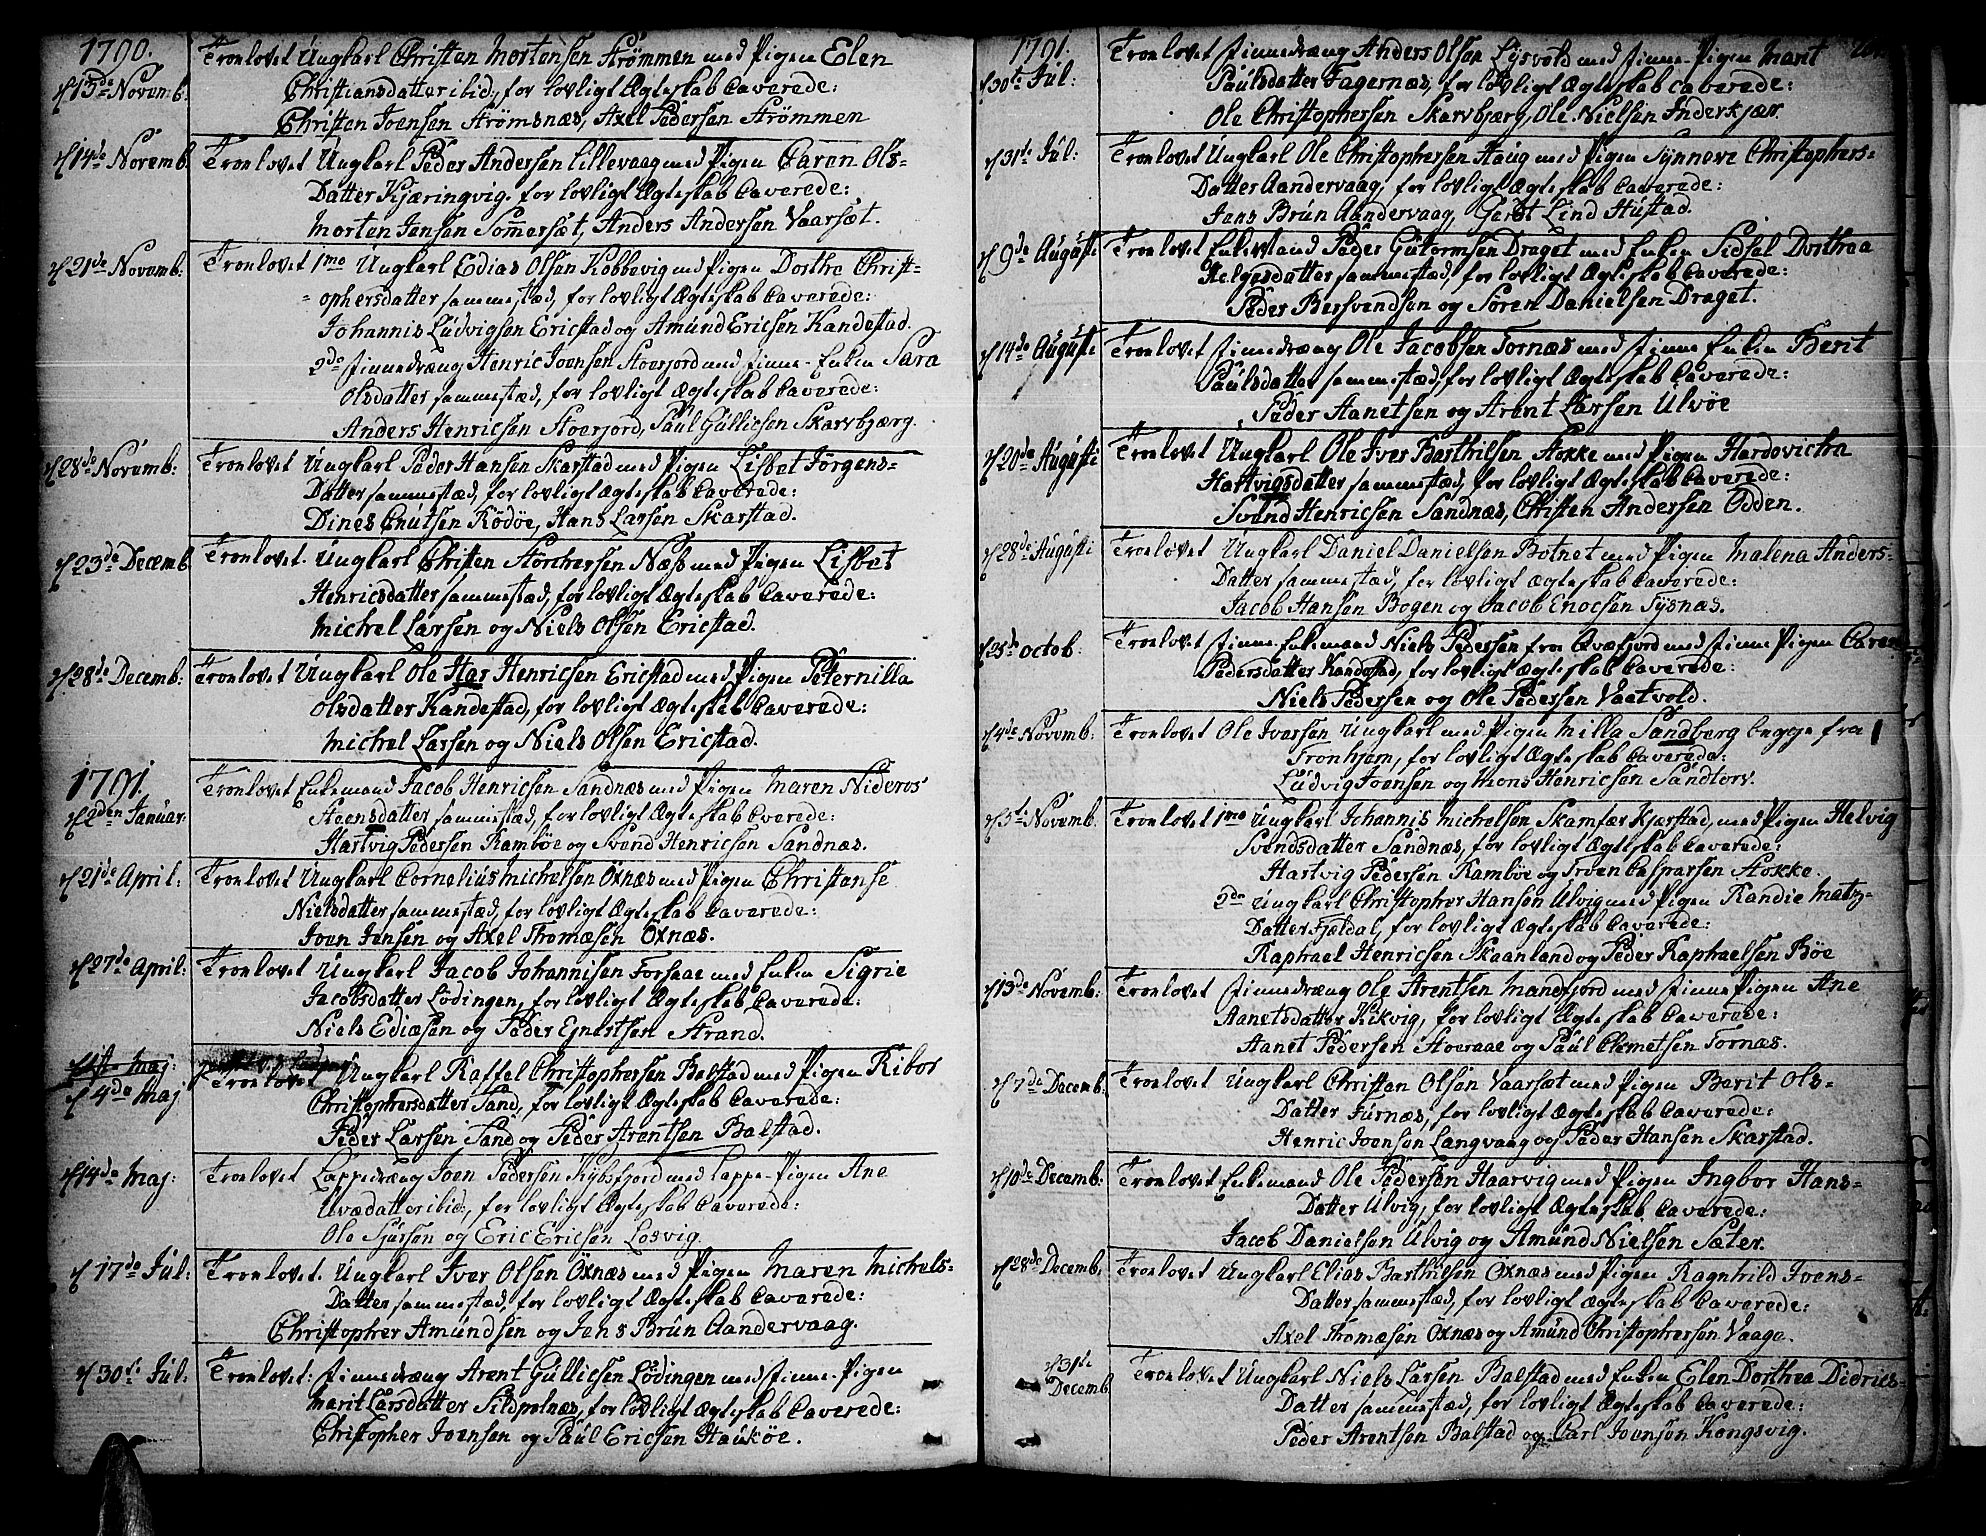 1790.
d 13de Novemb: Tronlovet Ungkarl Christen Mortensen Strømmen med Pigen Elen
Christiansdatter ibid:, for lovligt Ægteskab Caverede:
Christen Joensen Strømsnæs, Axel Pedersen Strømmen
d 14de Novemb. Tronlovet Ungkarl Peder Andersen Lillevaag med Pigen Caren Ols-
Datter Kjæringvig, for lovligt Ægteskab Caverede:
Morten Jensen Sommersæt, Anders Andersen Vaarsæt.
d 21de Novemb: Tronlovet 1mo Ungkarl Edias Olsen Kobbevig med Pigen Dorthe Christ-
-ophersdatter sammestæd, for lovligt Ægteskab Caverede:
Johannis Ludvigsen Ericstad og Amund Ericsen Kandestad.
2do Finnedræng Henric Joensen Stoerjord med Finne-Enken Sara
Olsdatter sammestæd, for lovligt Ægteskab Caverede:
Anders Henricsen Stoerjord, Paul Gullicsen Skarvbjærg.
d 28de Novemb: Tronlovet Ungkarl Peder Hansen Skarstad med Pigen Lisbet Jørgens-
Datter sammestæd, for lovligt Ægteskab Caverede:
Dines Cnutsen Rødøe, Hans Larsen Skarstad.
d 23de Decemb Tronlovet. Ungkarl Christen Störchersen Næss med Pigen Lisbet
Henricsdatter sammestæd, for lovligt Ægteskab Caverede:
Michel Larsen og Niels Olsen Ericstad.
d 28de Decemb: Tronlovet Ungkarl Ole Har Henricsen Ericstad med Pigen Peternilla
Olsdatter Kandestad, for lovligt Ægteskab Caverede:
Michel Larsen og Niels Olsen Ericstad.
1791.
d 2den Januar: Tronlovet Enkemand Jacob Henricsen Sandnæs med Pigen Maren Nideros
Steensdatter sammestæd, for lovligt Ægteskab Caverede:
Hartvig Pedersen Ramböe og Svend Henricsen Sandnæs.
d 21de April: Tronlovet Ungkarl Cornelius Michelsen Oxnæs med Pigen Christense
Nielsdatter sammestæd, for lovligt Ægteskab Caverede:
Joen Jensen og Axel Thomæsen Oxnæs.
d 27de April: Tronlovet Ungkarl Jacob Johannisen Forsaae med Enken Sigrie
Jacobsdatter Lödingen, for lovligt Ægteskab Caverede:
Niels Ediæsen og Peder Enertsen Strand.
d 4de Maj Tronlovet Ungkarl Raffel Christophersen Balstad med Pigen Ribor
Christophersdatter Sand, for lovligt Ægteskab Caverede:
Peder Larsen Sand og Peder Arentsen Balstad.
d 14de Maj: Tronlovet Lappedræng Joen Pedersen Kybsfjord med Lappe-Pigen Ane
Uvædatter ibid:, for lovligt Ægteskab Caverede:
Ole Sjursen og Eric Ericsen Losvig.
d 17de Jul: Tronlovet. Ungkarl Iver Olsen Oxnæs med Pigen Maren Michels-
Datter sammestæd, for lovligt Ægteskab Caverede:
Christopher Amundsen og Jens Brun Aandervaag.
d 30te Jul: Tronlovet: Finnedræng Arent Gullicsen Lödingen med Finne-Pigen
Marit Larsdatter Sildpolnæs, for lovligt Ægteskab Caverede:
Christopher Joensen og Paul Ericsen Stauköe.
1791.
d 30te Jul: Tronlovet Finnedræng Anders Olsen Lysvold med Finne-Pigen Marit
Paulsdatter Fagernæs, for lovligt Ægteskab Caverede:
Ole Christophersen Skarvbjærg, Ole Nielsen Inderkjær.
d 31te Jul: Tronlovet Ungkarl Ole Christophersen Staug med Pigen Synneve Christophers-
Datter Aandervaag, for lovligt Ægteskab Caverede:
Jens Brun Aandervaag, Gerdt Lind Hustad.
d 9de Augusti Tronlovet Enkestand Peder Gutormsen Draget med Enken Sidsel Dorthea
Helgesdatter sammestæd, for lovligt Ægteskab Caverede:
Peder Bersvendsen og Sören Danielsen Draget.
d 14de Augusti Tronlovet Finnedræng Ole Jacobsen Tornæs med Finne Enken Berit
Paulsdatter sammestæd, for lovligt Ægteskab Caverede:
Peder Aanetsen og Arent Larsen Ulvöe
d 20de Augusti Tronlovet Ungkarl Ole Iver Barthilsen Stokke med Pigen Hardevicha
Hartvigsdatter sammestæd, for lovligt Ægteskab Caverede:
Svend Henricsen Sandnæs, Christen Andersen Odden.
d 28de Augusti Tronlovet Ungkarl Daniel Danielsen Botnet med Pigen Malena Anders-
Datter sammestæd, for lovligt Ægteskab Caverede:
Jacob Hansen Bogen og Jacob Enocsen Tysnæs.
d 25de Octob: Tronlovet Finne Enkemand Niels Pedersen fra Qvæfjord med Finne Pigen Caren
Pedersdatter Kandestad, for lovligt Ægteskab Caverede:
Niels Pedersen og Ole Pedersen Vaatvold.
d 4de Novemb: Tronlovet Ole Iversen Ungkarl med Pigen Milla Sandberg begge fra
Tronhjem, for lovligt Ægteskab Caverede:
Ludvig Joensen og Mons Henricsen Sandtorv.
d 5te Novemb: Tronlovet 1mo Ungkarl Johannis Michelsen Skamfær Kjærstad, med Pigen Helvig
Svendsdatter Sandnæs, for lovligt Ægteskab Caverede:
Hartvig Pedersen Ramböe og Iver Casparsen Stokke.
2do Ungkarl Christopher Hansen Ulvig med Pigen Randie Matz-
Datter Fjeldal, for lovligt Ægteskab Caverede:
Raphael Henricsen Skaanland og Peder Raphaelsen Böe
d 13de Novemb: Tronlovet Finnedræng Ole Arentsen Mandfjord med Finne Pigen Ane
Aanetsdatter Kikvig, for lovligt Ægteskab Caverede:
Aanet Pedersen Stoeraae og Paul Clemetsen Tornæs.
d 7de Decemb: Tronlovet Ungkarl Christen Olsen Vaarsæt med Pigen Berit Ols-
Datter Furnæs, for lovligt Ægteskab Caverede:
Henric Joensen Langvaag og Peder Hansen Skarstad.
d 10de Decemb: Tronlovet Enkemand Ole Pedersen Haarvig med Pigen Ingbor Hans-
Datter Ulvig, for lovligt Ægteskab Caverede:
Jacob Danielsen Ulvig og Amund Nielsen Sæter.
d 28de Decemb: Tronlovet Ungkarl Elias Barthelsen Oxnæs med Pigen Ragnhild Ivens-
Datter sammestæd, for lovligt Ægteskab Caverede:
Axel Thomæsen Oxnæs og Amund Christophersen Vaage.
d 31te Decemb Tronlovet Ungkarl Niels Larsen Balstad med Enken Elen Dorthea Didrics-
Datter sammestæd, for lovligt Ægteskab Caverede:
Peder Arentsen Balstad og Carl Joensen Kongsvig.